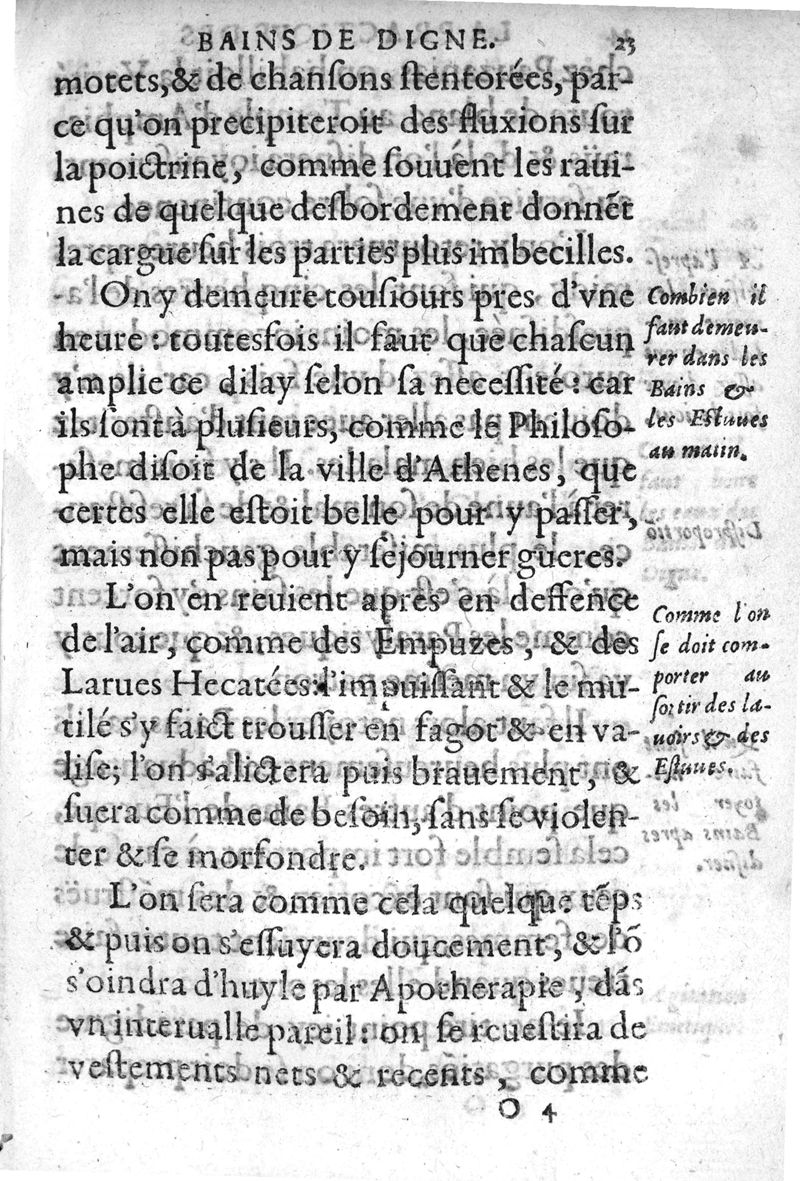 BAINS DE DIGNE. 23
motets, & de chanſons ſtentorées, par-
ce qu'on precipiteroit des fluxions ſur
la poictrine, comme ſouuent les raui-
nes de quelque desbordement donnẽt
la cargue ſur les parties plus imbecilles.
On y demeure touſiours pres d'vne
heure : toutesfois il faut que chaſcun
amplie ce dilay ſelon ſa neceſſité : car
ils ſont à pluſieurs, comme le Philoſo-
phe diſoit de la ville d'Athenes, que
certes elle eſtoit belle pour y paſſer,
mais non pas pour y ſejourner gueres.
L'on en reuient apres en deffence
de l'air, comme des Empuzes, & des
Larues Hecatées: l'impuiſſant & le mu-
tilé s'y faict trouſſer en fagot & en va-
liſe; l'on s'alictera puis brauement, &
ſuera comme de beſoin, ſans ſe violen-
ter & ſe morfondre.
L'on ſera comme cela quelque tẽps
& puis on s'eſſuyera doucement, & l'õ
s'oindra d'huyle par Apotherapie, dãs
vn interualle pareil : on ſe reueſtira de
veſtements nets & recents, comme
O 4
Combien il
faut demeu-
rer dans les
Bains &
les Eſtuues
au matin.
Comme l'on
ſe doit com-
porter au
ſortir des la-
uoirs & des
Eſtuues.